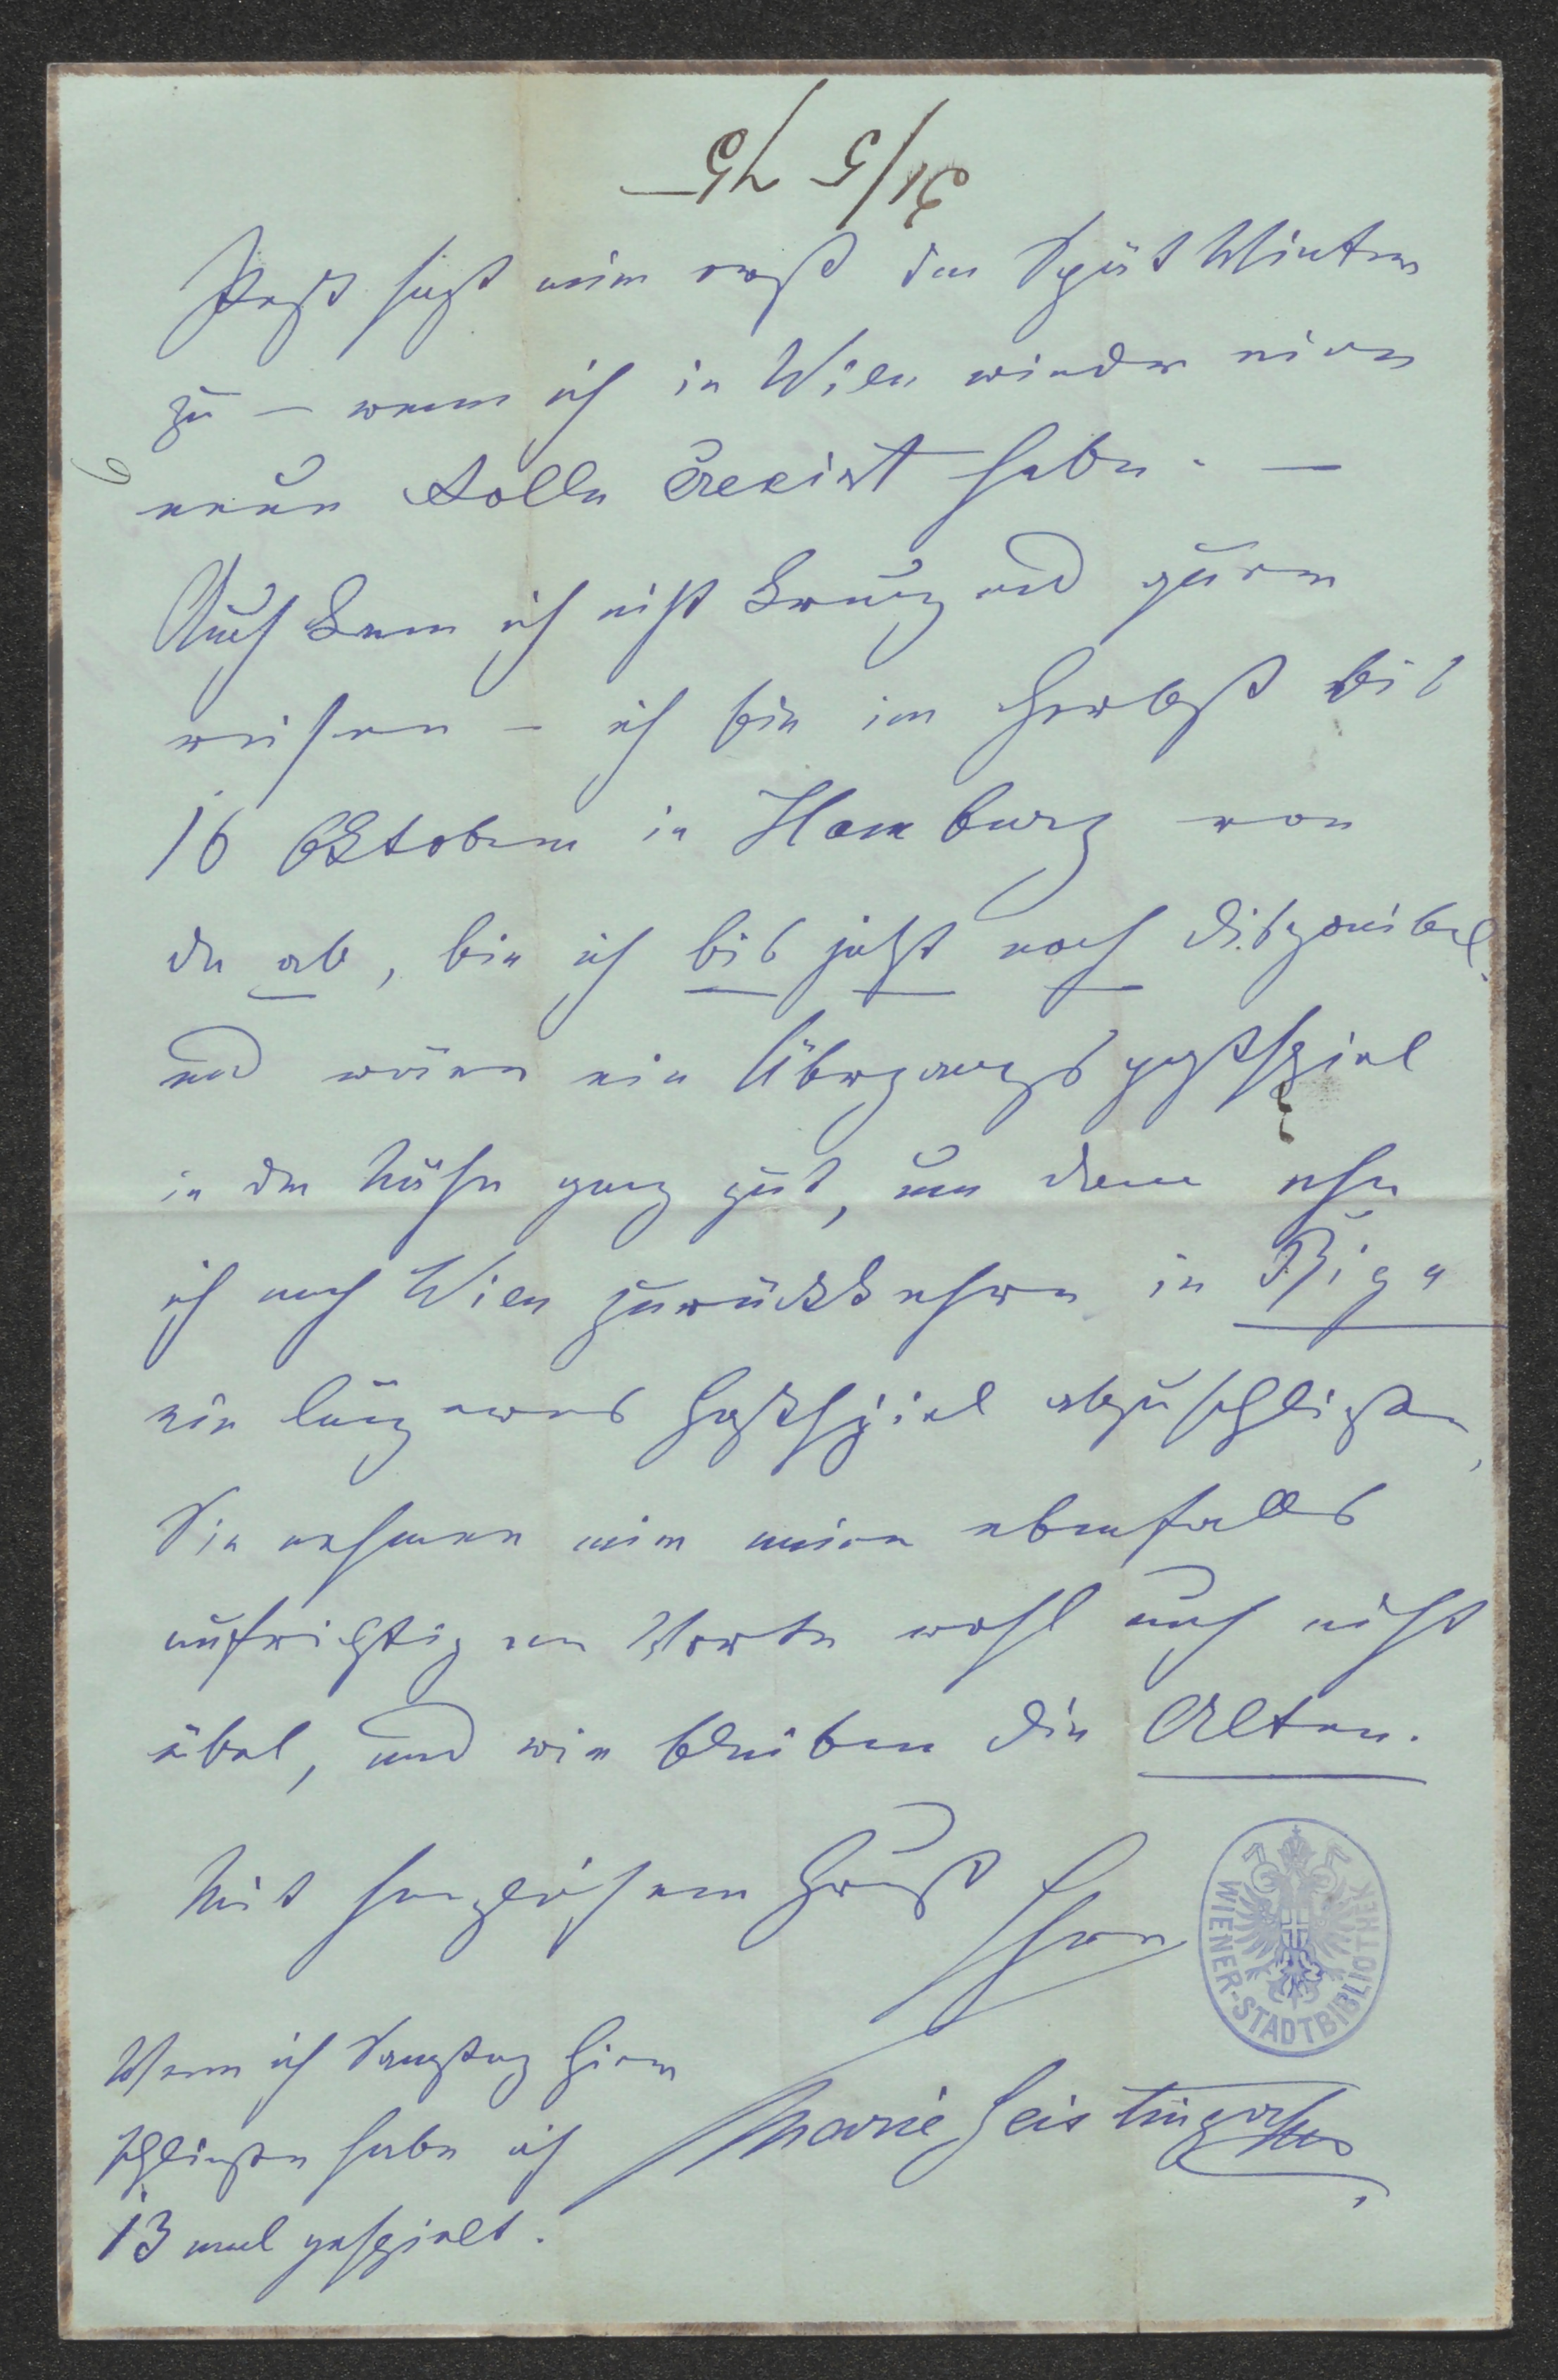 31/5 75
Pest sagt mir erst der Spät Winter
zu — wenn ich in Wien wieder eine
neue Rolle creirt habe. —
Auch kann ich nicht kreuz und quer
reisen — ich bin im Herbst bis
16 Oktober in Hamburg von
da ab, bin ich bis jetzt noch disponibel.
und wäre ein Übergangsgastspiel
in der Nähe ganz gut, um dann ehe
ich nach Wien zurückkehre in Riga
ein längeres Gastspiel abzuschließen,
Sie nehmen mir meine ebenfalls
aufrichtigen Worte wohl auch nicht
übel, und wir bleiben die Alten.
Mit herzlichem Gruß
Ihre
Marie Geistinger
Wenn ich Samstag hier
schließe habe ich
13 mal gespielt.
WIENER-STADTBIBLIOTHEK